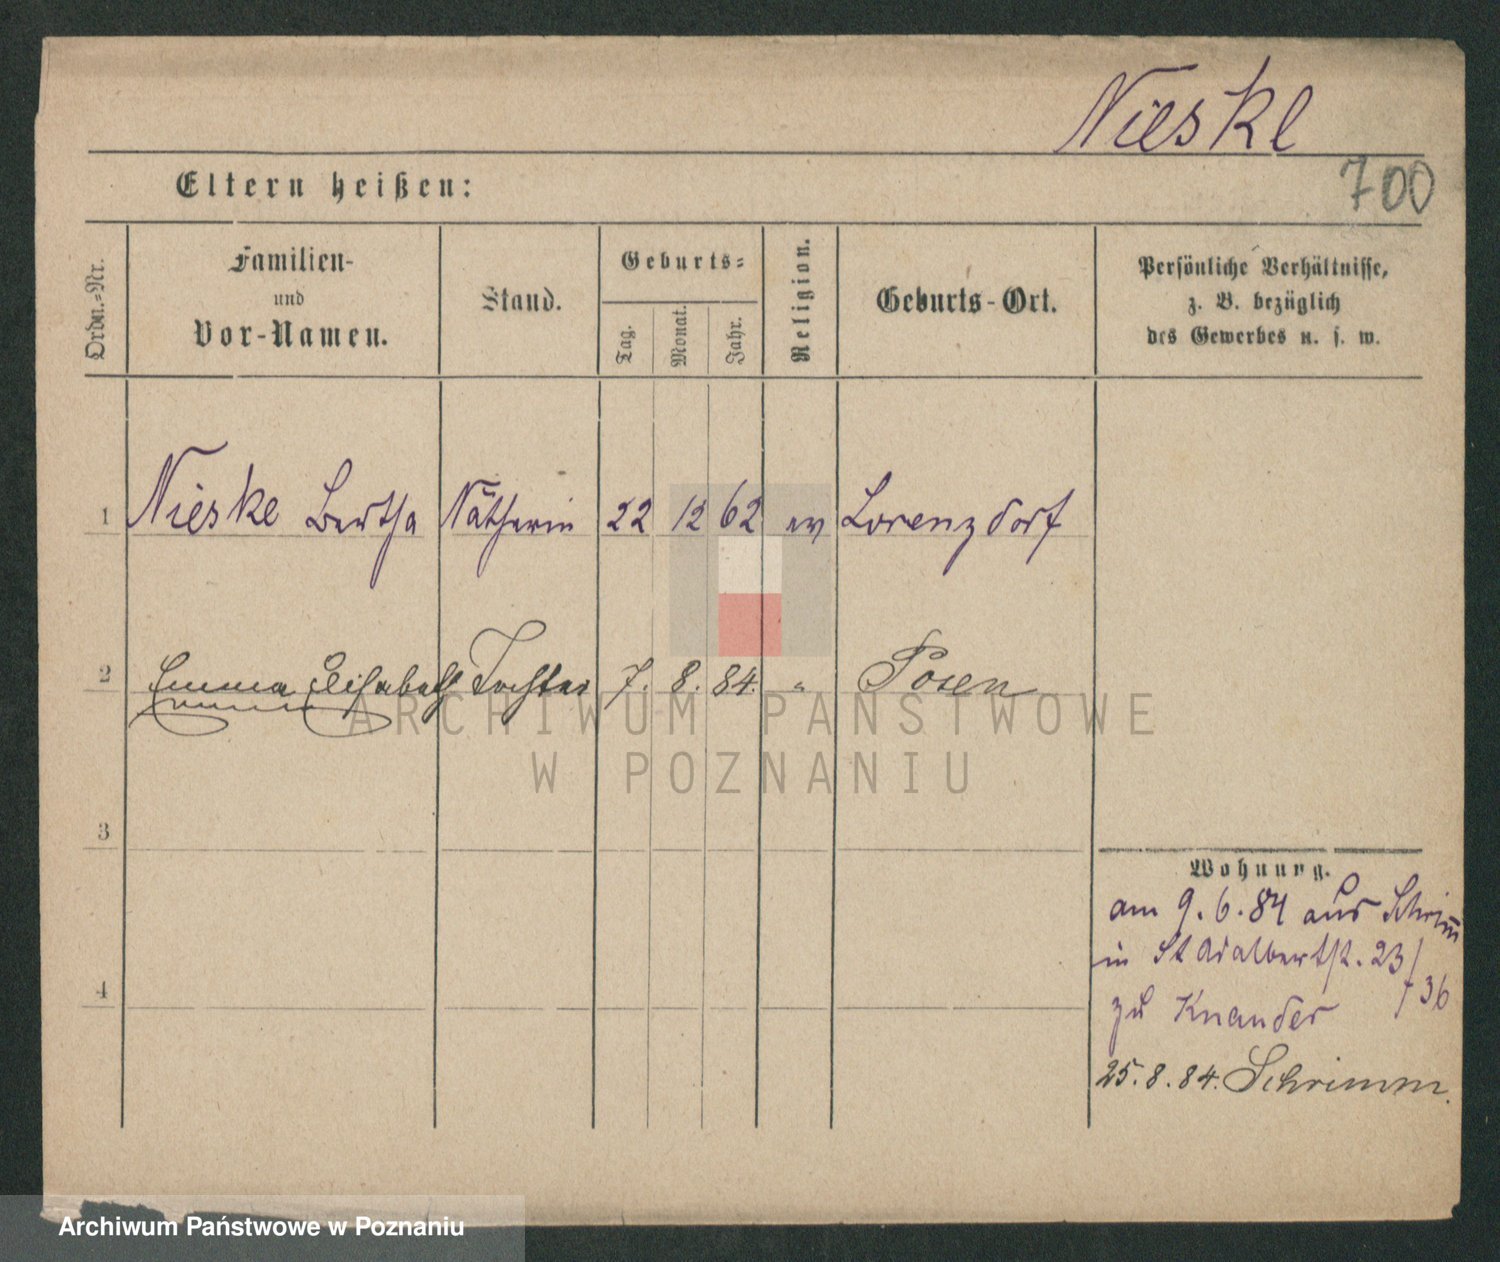 Nieske
700
Eltern heißen:
Ordn.-Nr.
Familien-
und
Vor-Namen.
Stand.
Geburts-
Tag.
Monat.
Jahr.
Religion.
Geburts-Ort.
Persönliche Verhältnisse,
z. B. bezüglich
des Gewerbes u. s. w.
1 Nieske Bertha Nätherin 22 12 62 ev Lorenzdorf
2 Emma Elisabeth Tochter 7. 8. 84. " Posen
3
4
Wohnung.
am 9.6.84 aus Schrim̅
in St Adalbertst. 23/
36
zu Knander
25.8.84. Schrimm.
ARCHIWUM PAŃSTWOWE
W POZNANIU
Archiwum Państwowe w Poznaniu